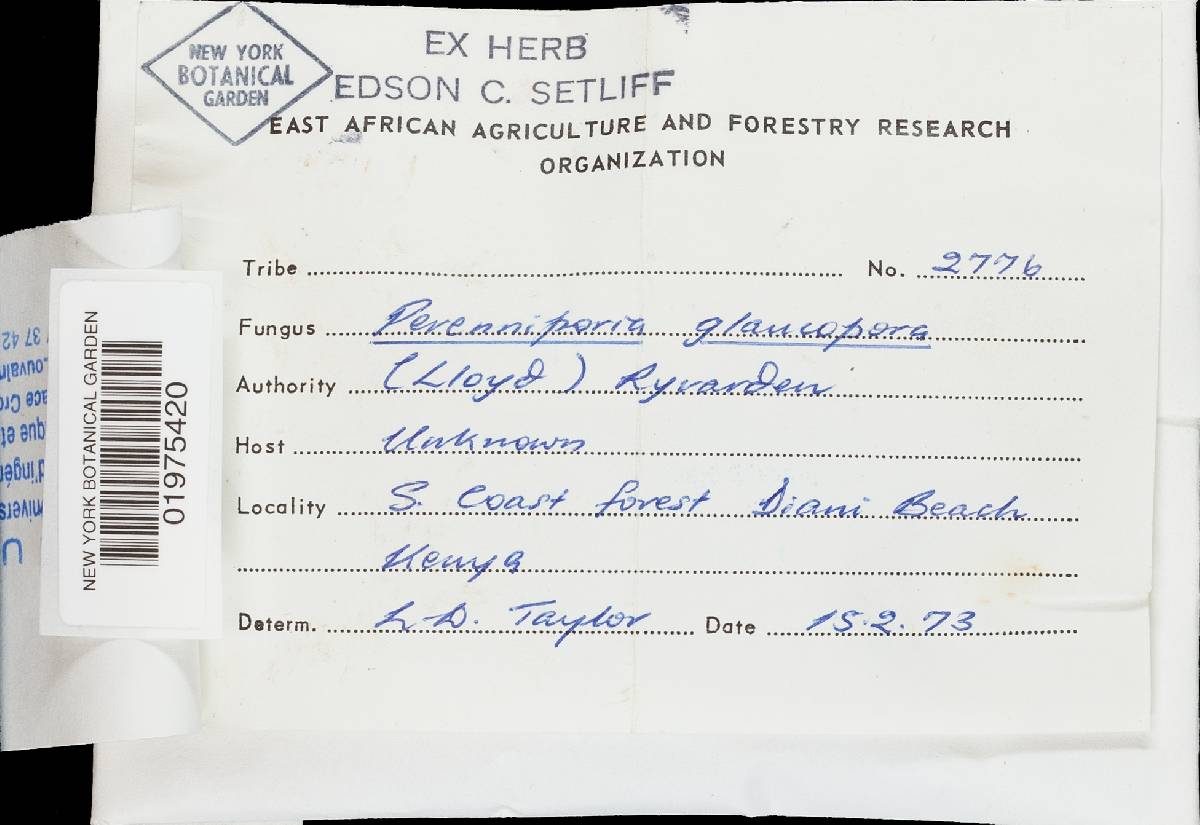 NEW YORK
BOTANICAL
GARDEN
EX HERB
EDSON C. SETLIFF
EAST AFRICAN AGRICULTURE AND FORESTRY RESEARCH
ORGANIZATION
Tribe No. 2776
Fungus Perenniporia glaucopora
Authority (Lloyd) Ryvarden
Host Unknown
Locality S. Coast forest Diani Beach
Kenya
Determ. L.D. Taylor Date 15.2.73
NEW YORK BOTANICAL GARDEN
01975420
37 42